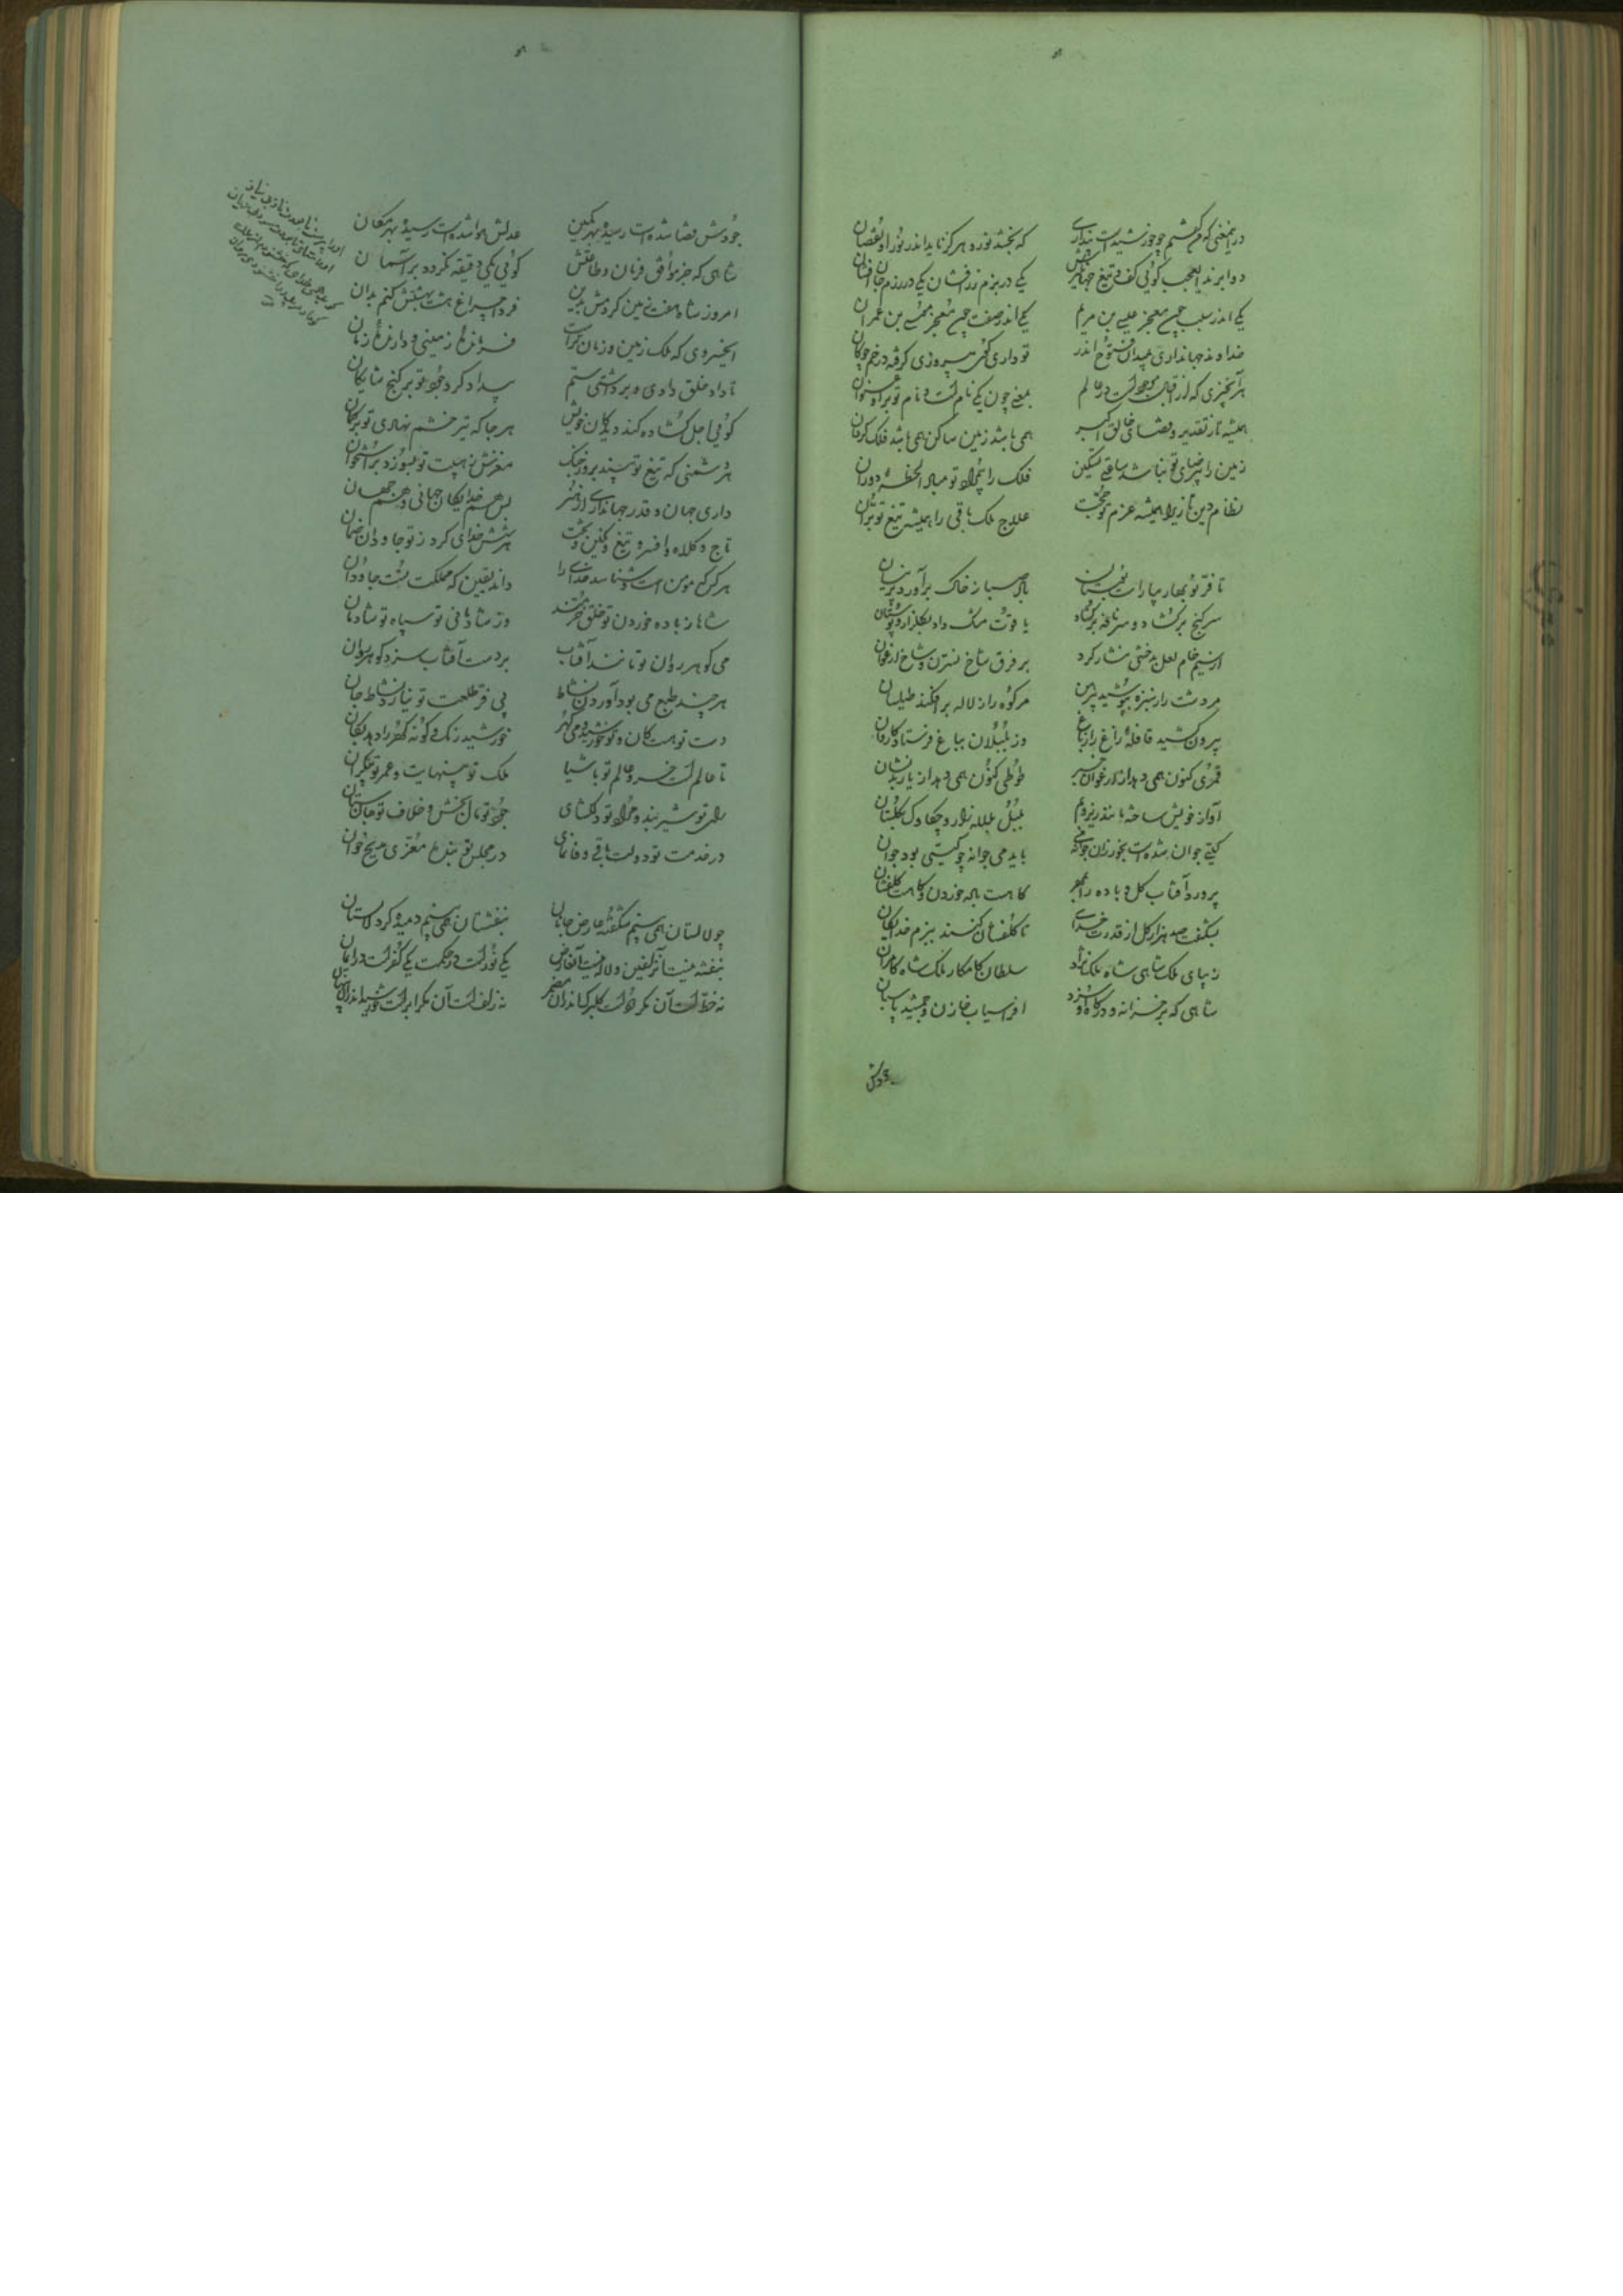 که بخشد نور و هرگز ناید اندر نور او نقصان
دو ابرند ای عجب گوئی کف و تیغ جهانگیرش یکی در بزم زرافشان یکی در رزم جان افشان
یکی اندر سلب چون معجز عیسی بن مریم یکی اندر صفت چون معجز موسی بن عمران
خداوند جهانداری بمیدان فتوح اندر تو داری گوی پیروزی گرفته در خم چوگان
همیشه تا ز تقدیر و قضای خالق اکبر همی باشد زمین ساکن همی باشد فلک گردان
زمین را بی رضای تو مباشد ساعتی تسکین فلک را بی مراد تو مباد الحظهٔ دوران
نظام دین تازی را همیشه عزم تو حجت علاج ملک باقی را همیشه تیغ تو بران
تا فر نوبهار بیاراست بوستان باد صبا ز خاک برآورد پرنیان
سر گنج برگشاد و سر نافه برگشاد یاقوت و مشک داد بگلزار و بوستان
از سیم خام لعل بدخشی نثار کرد بر فرق شاخ نسترن و شاخ ارغوان
مر دشت را ز سبزه بپوشید پیرهن مر کوه را ز لاله برافکند طیلسان
بیرون کشید قافلهٔ زاغ را ز باغ وز بلبلان بباغ فرستاد کاروان
قمری کنون همی دهد از ارغوان خبر طوطی کنون همی دهد از یار بد نشان
آواز خویش ساخته با نغز زیر و بم بلبل بلاله زار و چکاوک بگلستان
گیتی جوان شده است بخور زان جوانه می باید می جوانه چو گیتی بود جوان
پرورد آفتاب گل و باده را بمهر گاهست باده خوردن و گاهست گلفشان
بشکفت صد هزار گل از قدرت خدای تا گلفشان کنند ببزم خدایگان
زیبای ملک شاهی شاه ملک نژاد سلطان کامکار ملک شاه کامران
شاهی که بر خزانه و درگاه او سزد افراسیاب خازن و جمشید پاسبان
جودش
جودش قضا شده است رسیده بهر مکین عدلش هوا شده است رسیده بهر مکان
شاهی که جز موافق فرمان و طاعتش گوئی یکی دقیقه نگردد بر آسمان
امروز شاه هفت زمین کردش بدین فردا چراغ هشت بهشتش کنم بدان
ای خسروی که ملک زمین و زمان تراست فرمانده زمینی و دارنده زمان
تا داد خلق دادی و برداشتی ستم بیداد کرد جود تو بر گنج شایگان
گوئی اجل گشاده کند دیدگان خویش هر جا که تیر خشم نهادی تو بر کمان
هر دشمنی که تیغ تو بیند بروز جنگ مغزش ز هیبت تو بسوزد بر استخوان
داری جهان و قدر جهانداری از هنر بس هم خدایگان جهانی و هم جهان
تاج و کلاه و افسر و تیغ و نگین و تخت هر شش خدای کرد ز تو جاودان ضمان
هر کس که مؤمن است و شناسد خدای را داند یقین که مملکت تست جاودان
شاها ز باده خوردن تو خلق خرمند وز شادمانی تو سپاه تو شادمان
می گوهر روان تو مانند آفتاب بر دست آفتاب سزد گوهر روان
هر چند طبع می بود آوردن نشاط بی فر طلعت تو نیارد نشاط جان
دست تو هست کان و تو خورشید و می گهر خورشید رنگ و گونه گهر را دهد بکان
تا عالم است خسرو عالم تو باشیا ملک تو بی نهایت و عمر تو بی کران
رای تو شیربند و مراد تو دلگشای جود تو مال بخش و خلاف تو جان ستان
در خدمت تو دولت باقی وفا نمای در مجلس تو بنده معزی مدیح خوان
چو لالستان همی بینم شکفته عارض جانان بنفشستان همی بینم دمیده گرد لالستان
بنفشه نیست آن زلفین و لاله نیست آن عارض یکی نورست در حکمت یکی کفرست در ایمان
نه خط است آن مگر دود است گلبرگ اندر آن مضمر نه زلف است آن مگر ابر است خورشید اندر آن پنهان